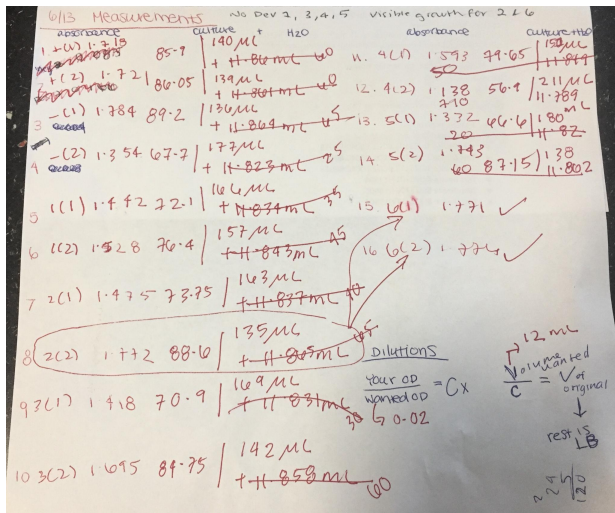 6/13 Measurements No Dev 2, 3, 4, 5 visible growth for 2 & 6
absorbance culture + H2O
1 +(1) 1.715 85.9 | 140 µL
+ 11.860 mL 60
+(2) 1.721 86.05 | 139 µL
+ 11.861 mL 60
3 -(1) 1.784 89.2 | 136 µL
+ 11.864 mL 65
4 -(2) 1.354 67.7 | 177 µL
+ 11.823 mL 25
5 1(1) 1.442 72.1 | 166 µL
+ 11.834 mL 35
6 1(2) 1.528 76.4 | 157 µL
+ 11.843 mL 45
7 2(1) 1.475 73.75 | 163 µL
+ 11.837 mL 40
8 2(2) 1.772 88.6 | 135 µL
+ 11.865 mL 65
9 3(1) 1.418 70.9 | 169 µL
+ 11.831 mL 30
10 3(2) 1.695 84.75 | 142 µL
+ 11.858 mL 60
absorbance culture + H2O
11. 4(1) 1.593 79.65 | µL
50
12. 4(2) 1.138 56.9 | 211 µL
11.789
13. 5(1) 1.332 66.6 | 180 mL
20 11.82
14 5(2) 1.743 87.15 | 138
60 11.862
15. 6(1) 1.771 ✓
16 6(2) 1.774 ✓
Dilutions
Your OD / Wanted OD = Cx
0.02
12 mL
Volume wanted / C = V of original
rest is LB